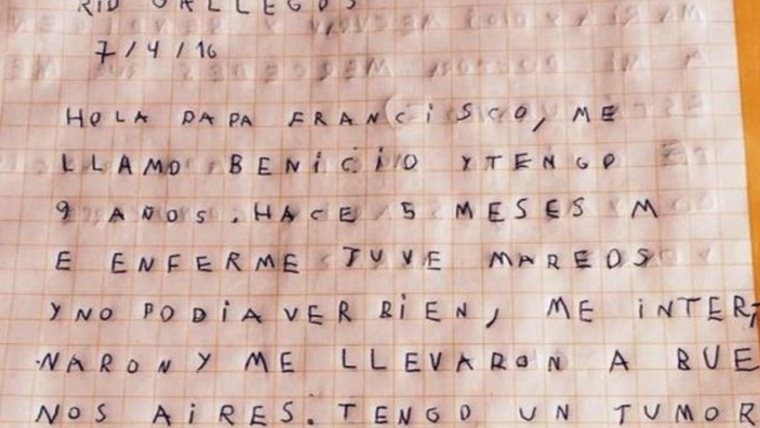 RIO GALLEGOS
7/4/16
HOLA PAPA FRANCISCO, ME
LLAMO BENICIO Y TENGO
9 AÑOS. HACE 5 MESES M
E ENFERME TUVE MAREOS
Y NO PODIA VER BIEN, ME INTER
NARON Y ME LLEVARON A BUE
NOS AIRES. TENGO UN TUMOR